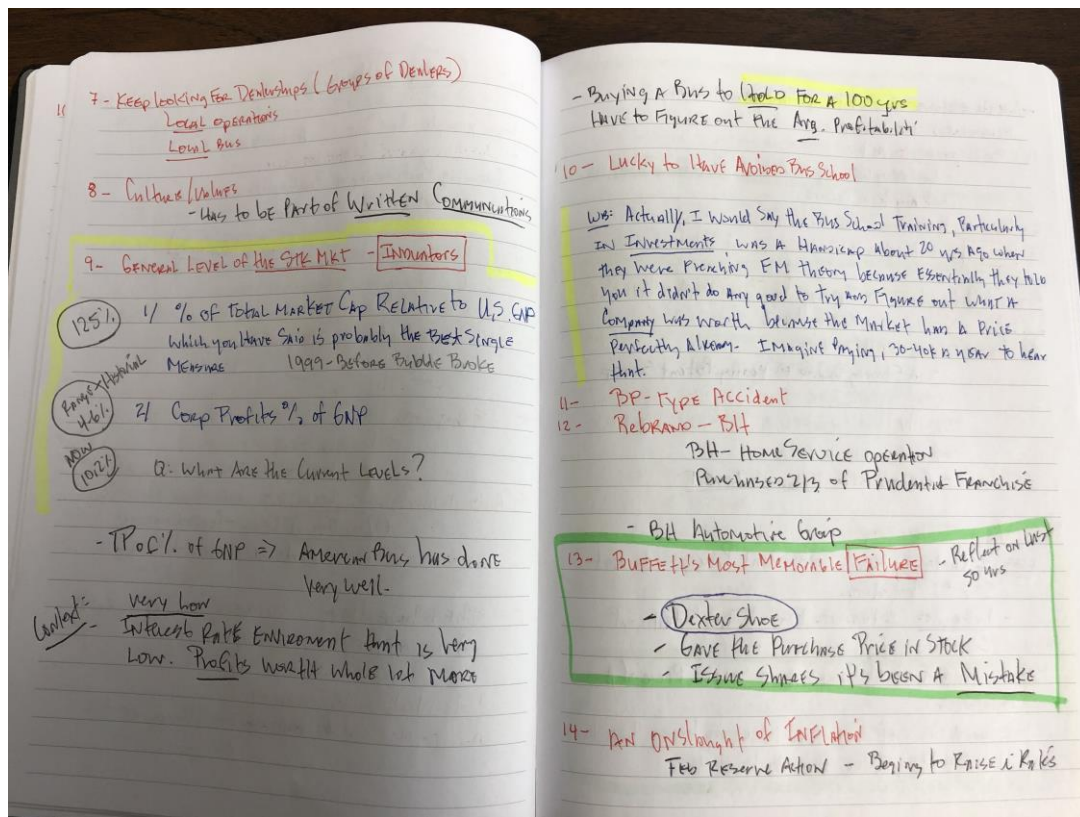 7 - Keep looking For Dealerships (Groups of Dealers)
Local operations
Local Bus
8 - Culture/Values
- Has to be Part of Written Communications
9 - General Level of the STK MKT - Indicators
125%
1/ % of Total Market Cap Relative to U.S. GNP
which you Have Said is probably the Best Single
Measure 1999 - Before Bubble Broke
Range Historical
4-6%
2/ Corp Profits % of GNP
NOW
10.2%
Q: What Are the Current Levels?
- % of GNP => American Bus has done
Very well.
Context:
very low
- Interest Rate Enviroment that is Very
Low. Profits worth whole lot more
- Buying A Bus to Hold FOR A 100 yrs
Have to Figure out the Avg. Profitability
10 - Lucky to Have Avoided Bus School
WB: Actually, I Would Say the Bus School Training, Particularly
IN Investments was A Handicap About 20 yrs Ago when
they were Preaching EM theory because Essentially they told
you it didn't do Any good to Try and Figure out what A
Company was worth because the Market has A Price
Perfectly Already. Imagine Paying, 30-40K A year to hear
that.
11 - BP-Type Accident
12 - Rebrand - BH
BH - Home Service operation
Purchased 2/3 of Prudential Franchise
- BH Automotive Group
13 - Buffett's Most Memorable Failure - Reflect on Last
50 yrs
- Dexter Shoe
- Gave the Purchase Price in Stock
- Issue Shares it's been A Mistake
14 - AN Onslaught of Inflation
Fed Reserve Action - Begins to Raise i Rates